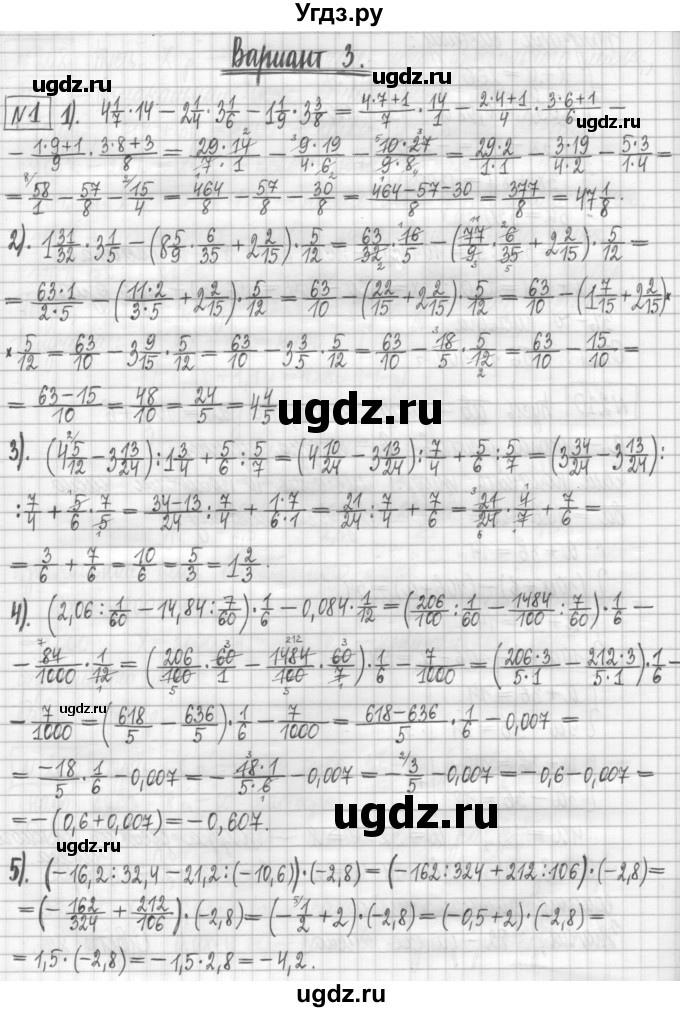 Угдз.ру
Вариант 3.
№1 1). 4 1/7 · 14 − 2 1/4 · 3 1/6 − 1 1/9 · 3 3/8 = (4·7+1)/7 · 14/1 − (2·4+1)/4 · (3·6+1)/6 −
ugdz.ru
− (1·9+1)/9 · (3·8+3)/8 = (29·14)/(7·1) − (9·19)/(4·6) − (10·27)/(9·8) = (29·2)/(1·1) − (3·19)/(4·2) − (5·3)/(1·4) =
= 58/1 − 57/8 − 15/4 = 464/8 − 57/8 − 30/8 = (464−57−30)/8 = 377/8 = 47 1/8.
ugdz.ru
2). 1 31/32 · 3 1/5 − (8 5/9 · 6/35 + 2 2/15) · 5/12 = 63/32 · 16/5 − (77/9 · 6/35 + 2 2/15) · 5/12 =
= (63·1)/(2·5) − ((11·2)/(3·5) + 2 2/15) · 5/12 = 63/10 − (22/15 + 2 2/15) · 5/12 = 63/10 − (1 7/15 + 2 2/15) ×
× 5/12 = 63/10 − 3 9/15 · 5/12 = 63/10 − 3 3/5 · 5/12 = 63/10 − 18/5 · 5/12 = 63/10 − 15/10 =
= (63−15)/10 = 48/10 = 24/5 = 4 4/5
ugdz.ru
3). (4 5/12 − 3 13/24) : 1 3/4 + 5/6 : 5/7 = (4 10/24 − 3 13/24) : 7/4 + 5/6 : 5/7 = (3 34/24 − 3 13/24) :
: 7/4 + 5/6 · 7/5 = (34−13)/24 : 7/4 + (1·7)/(6·1) = 21/24 : 7/4 + 7/6 = 21/24 · 4/7 + 7/6 =
ugdz.ru
= 3/6 + 7/6 = 10/6 = 5/3 = 1 2/3.
4). (2,06 : 1/60 − 14,84 : 7/60) · 1/6 − 0,084 · 1/12 = (206/100 : 1/60 − 1484/100 : 7/60) · 1/6 −
− 84/1000 · 1/12 = (206/100 · 60/1 − 1484/100 · 60/7) · 1/6 − 7/1000 = ((206·3)/(5·1) − (212·3)/(5·1)) · 1/6 −
ugdz.ru
− 7/1000 = (618/5 − 636/5) · 1/6 − 7/1000 = (618−636)/5 · 1/6 − 0,007 =
= −18/5 · 1/6 − 0,007 = − (18·1)/(5·6) − 0,007 = − 3/5 − 0,007 = −0,6 − 0,007 =
ugdz.ru
= −(0,6+0,007) = −0,607.
5). (−16,2 : 32,4 − 21,2 : (−10,6)) · (−2,8) = (−162 : 324 + 212 : 106) · (−2,8) =
= (− 162/324 + 212/106) · (−2,8) = (− 1/2 + 2) · (−2,8) = (−0,5+2) · (−2,8) =
= 1,5 · (−2,8) = −1,5 · 2,8 = −4,2.
ugdz.ru
ugdz.ru